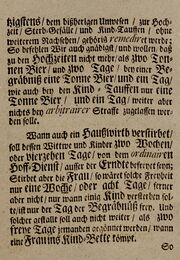 tzigstens / dem bißherigen Unwesen / zur Hoch-
zeit / Sterb-Gefälle / und Kind-Tauffen / ohne
weiterem Nachsehen / gehörig remediret werde;
So befehlen Wir auch gnädigst / und wollen / daß
zu den Hochzeiten nicht mehr als zwo Ton-
nen Bier / und zwo Tage / bey einer Be-
gräbniß eine Tonne Bier und ein Tag /
wie auch bey den Kind-Tauffen nur eine
Tonne Bier / und ein Tag / weiter aber
nichts bey arbitrairer Straffe zugelassen wer-
den solle.
Wann auch ein Haußwirth verstirbet /
soll dessen Wittwe und Kinder zwo Wochen /
oder vierzehen Tage / von dem ordinairen
Hoff-Dienst / ausser der Erndte befreyet seyn:
Stürbet aber die Frau / so wäret solche Freyheit
nur eine Woche / oder acht Tage / ferner
aber nicht; nur wann einig Kind verstorben sol-
te / ist nur der Tag der Begräbniß frey. Und
solcher gestalt soll auch nicht weiter / als zwo
freye Tage jemanden gegönnet werden / wann
eine Frau ins Kind-Bette kömpt.
So